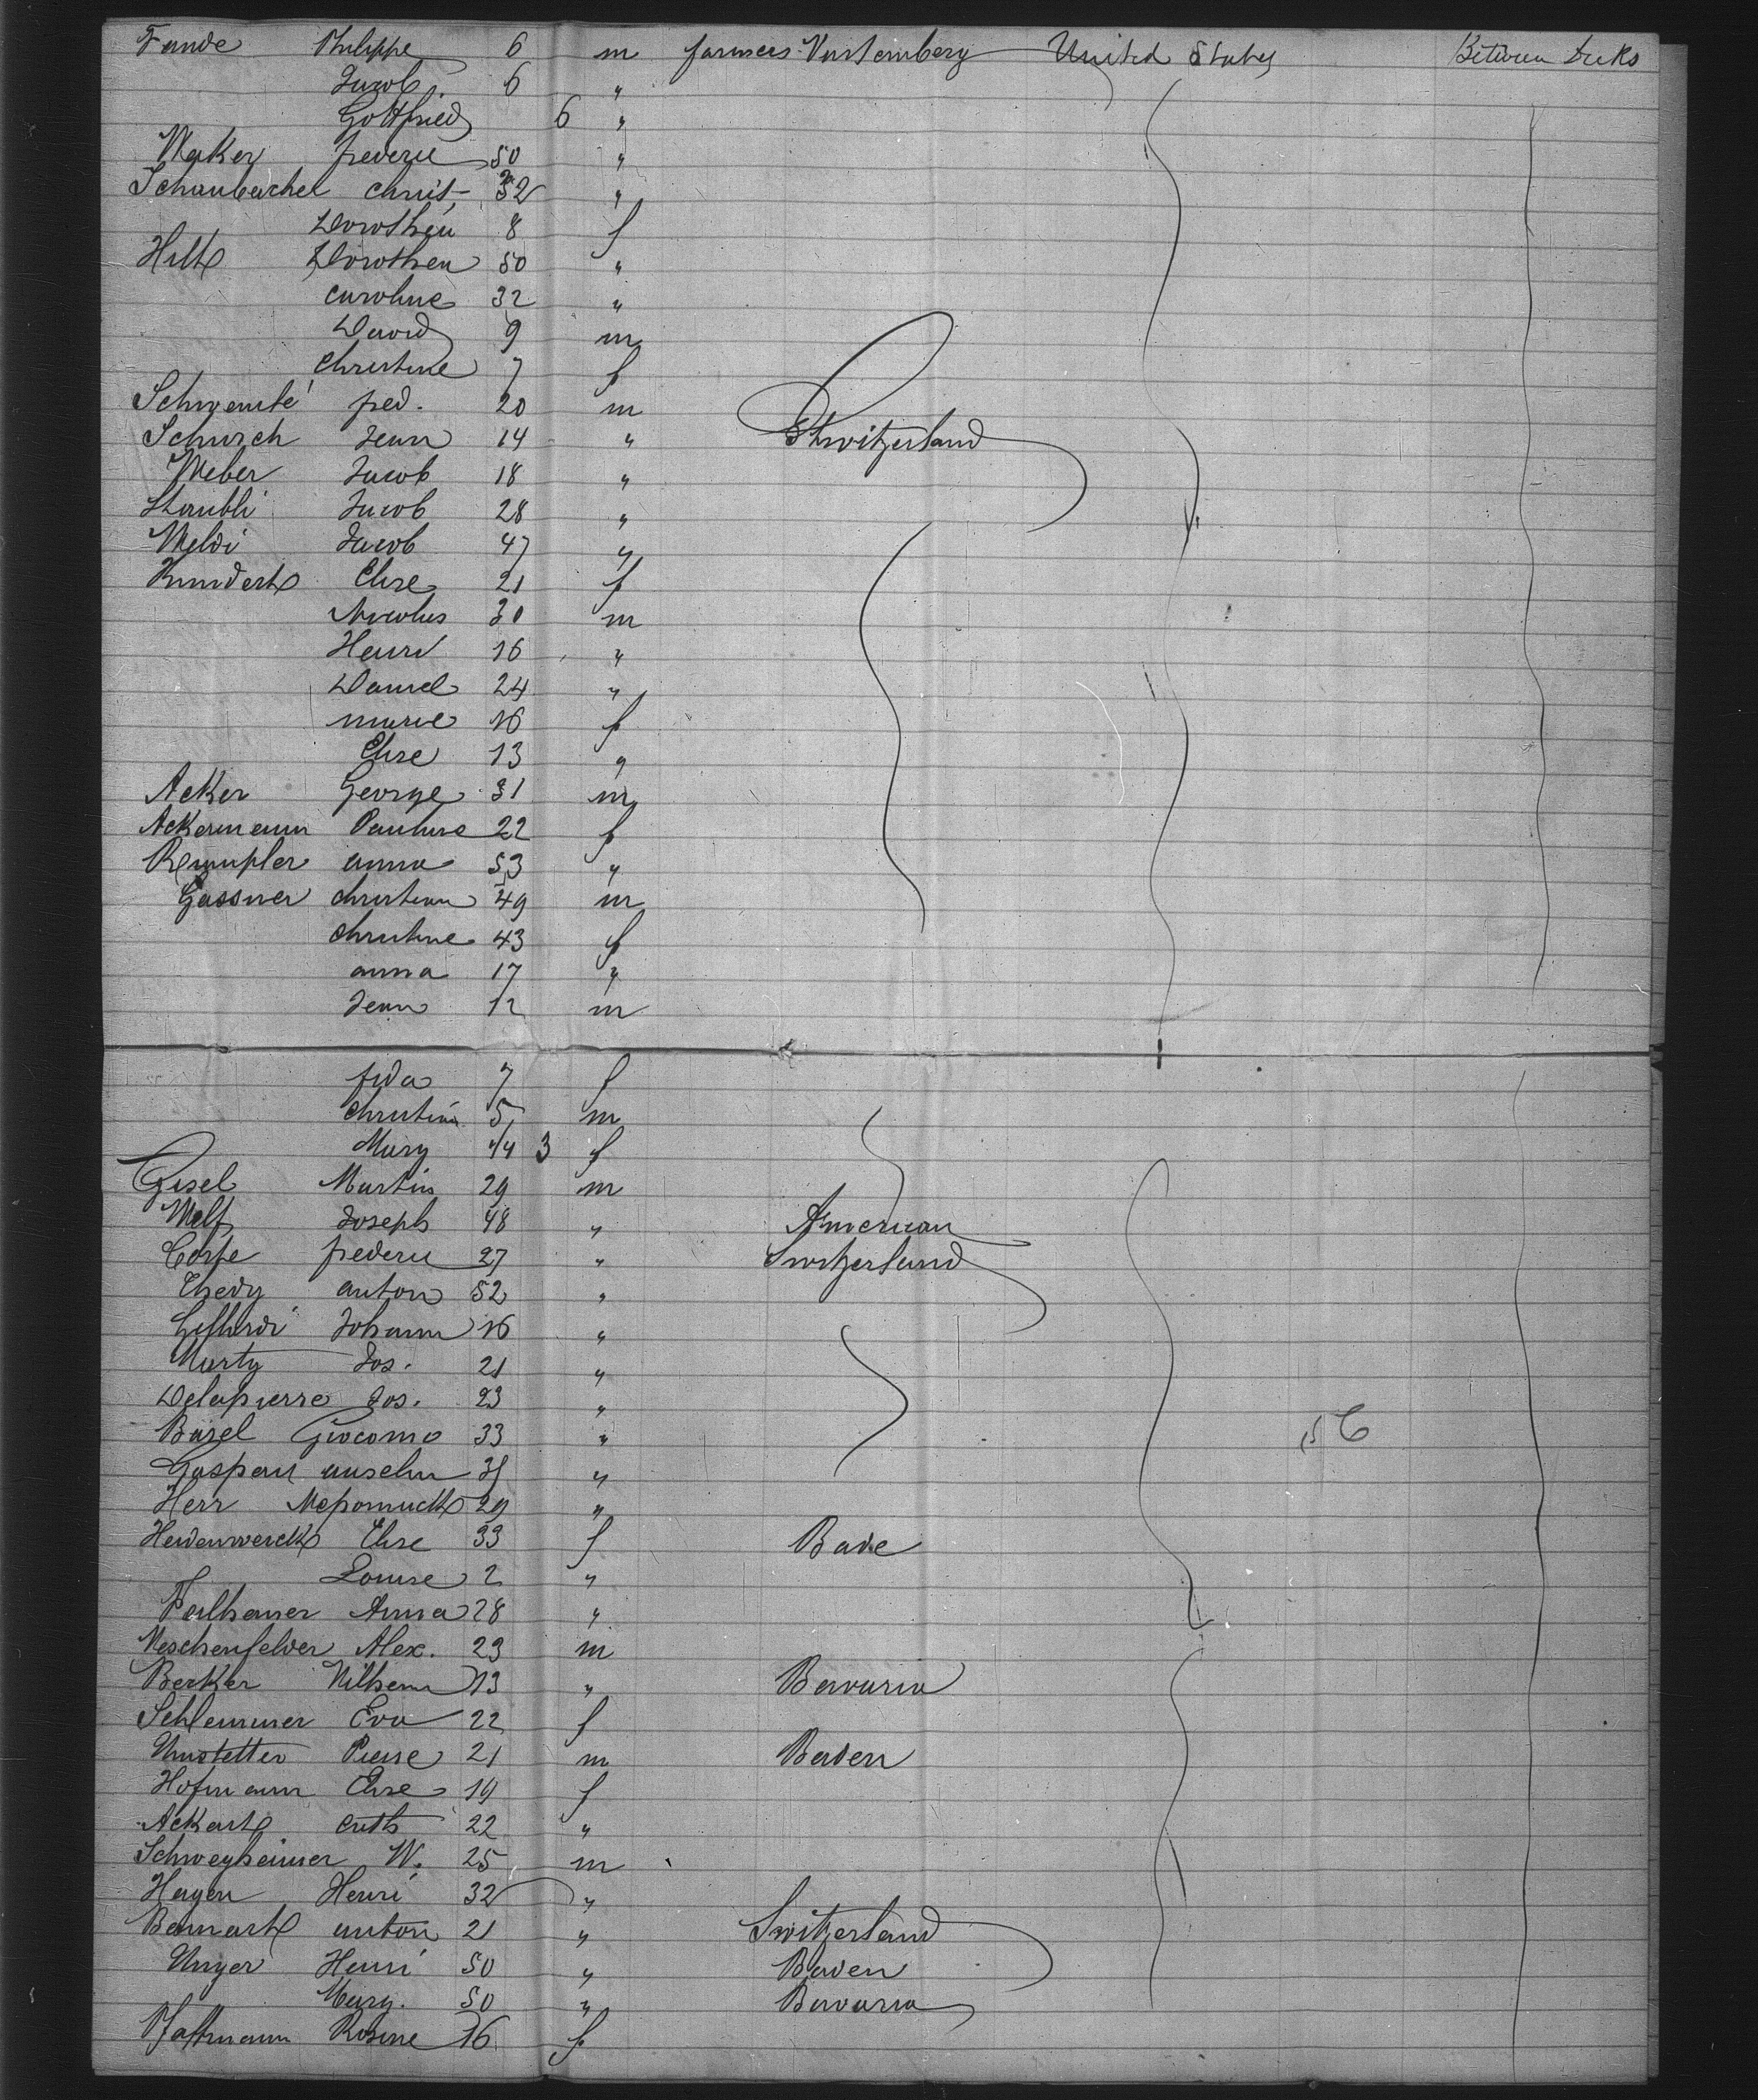 Funde Philippe 6 m farmers Vurtemberg United States Between Decks
Jacob 6 "
Gottfried 6 "
Weker frederic 50 "
Schaubacher Christ. 32 "
Dorothea 8 f
Hilt Dorothea 50 "
Caroline 32 "
David 9 m
Christine 7 f
fred. 20 m
Schurch Jean 14 " Switzerland
Weber Jacob 18 "
Staubli Jacob 28 "
Weldi Jacob 47 "
Kundert Elise 21 f
Nicolas 30 m
Henri 16 "
Daniel 24 "
marie 16 f
Elise 13 "
Acker George 31 m
Ackermann Pauline 22 f
Rempfler anna 53 "
Gassner Christian 49 m
Christine 43 f
anna 17 "
Jean 12 m
fida 7 f
Christian 5 m
Mary 3 f
Gisel Martin 29 m
Welf Joseph 48 " American
frederic 27 " Switzerland
Thedy anton 52 "
Johann 16 "
Marty Jos. 21 "
Delapierre Jos. 23 "
Basel Giocomo 33 "
Gaspari anselm "
Herr Nepomuck 29 "
Heidenwerck Elise 33 f Bade
Louise 2 "
Anna 28 "
Meschenfelder Alex. 23 m
Becker Wilhem 13 " Bavaria
Schlemmer Eva 22 f
Umstetter Pierre 21 m Baden
Hofmann Elise 19 f
Ackert cath 22 "
Schweyheimer W. 25 m
Hagen Henri 32 "
Bernart anton 21 " Switzerland
Unger Henri 50 " Baden
Mary. 50 " Bavaria
Pfaffmann Rosine 16 f